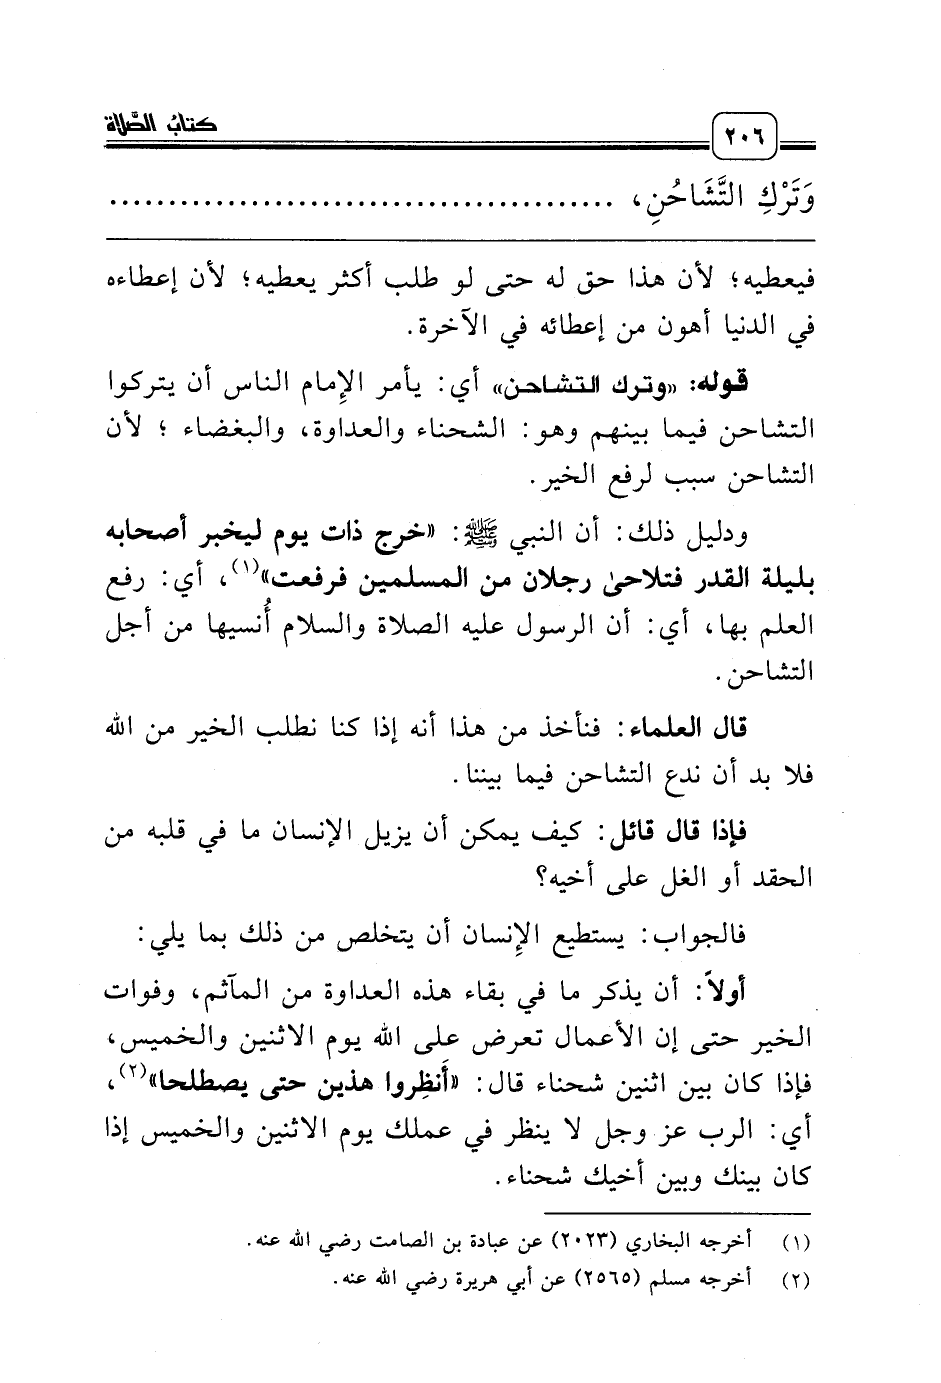 كتابُ الصَّلاة
٢٠٦
وَتَرْكِ التَّشَاحُنِ، ...........................................
فيعطيه؛ لأن هذا حق له حتى لو طلب أكثر يعطيه؛ لأن إعطاءه
في الدنيا أهون من إعطائه في الآخرة.
قوله: «وترك التشاحن» أي: يأمر الإمام الناس أن يتركوا
التشاحن فيما بينهم وهو: الشحناء والعداوة، والبغضاء ؛ لأن
التشاحن سبب لرفع الخير.
ودليل ذلك: أن النبي ﷺ: «خرج ذات يوم ليخبر أصحابه
بليلة القدر فتلاحىٰ رجلان من المسلمين فرفعت»(١)، أي: رفع
العلم بها، أي: أن الرسول عليه الصلاة والسلام أُنسيها من أجل
التشاحن.
قال العلماء: فنأخذ من هذا أنه إذا كنا نطلب الخير من الله
فلا بد أن ندع التشاحن فيما بيننا.
فإذا قال قائل: كيف يمكن أن يزيل الإنسان ما في قلبه من
الحقد أو الغل على أخيه؟
فالجواب: يستطيع الإنسان أن يتخلص من ذلك بما يلي:
أولاً: أن يذكر ما في بقاء هذه العداوة من المآثم، وفوات
الخير حتى إن الأعمال تعرض على الله يوم الاثنين والخميس،
فإذا كان بين اثنين شحناء قال: «أَنظِروا هذين حتى يصطلحا»(٢)،
أي: الرب عز وجل لا ينظر في عملك يوم الاثنين والخميس إذا
كان بينك وبين أخيك شحناء.
(١) أخرجه البخاري (٢٠٢٣) عن عبادة بن الصامت رضي الله عنه.
(٢) أخرجه مسلم (٢٥٦٥) عن أبي هريرة رضي الله عنه.